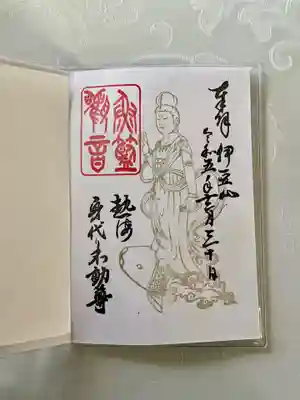 奉拝 伊豆山
令和五年 月三十日
魚籃
觀音
熱海
身代り不動尊